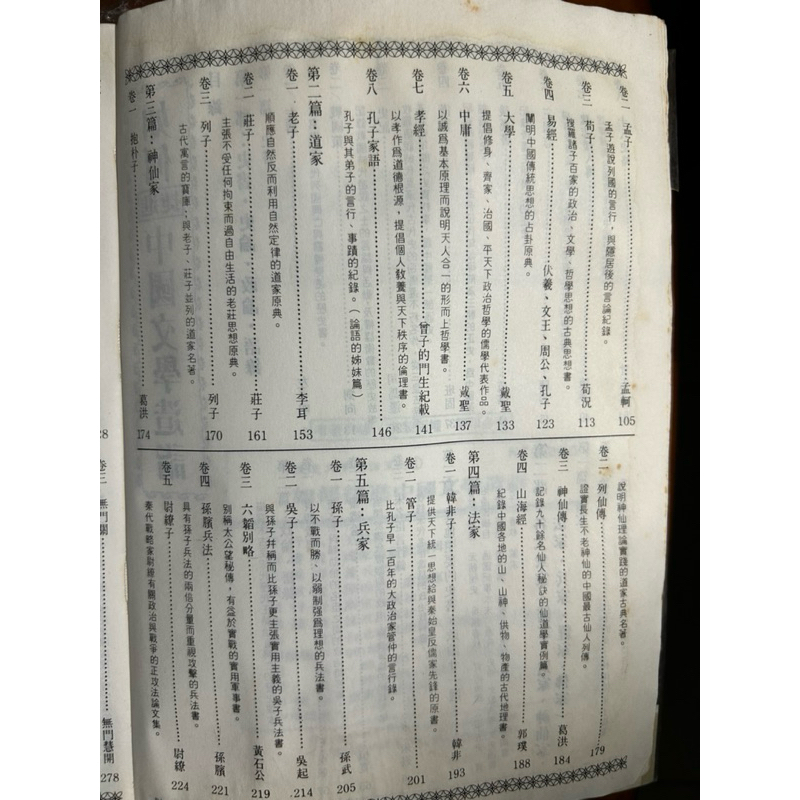 卷二 孟子 孟軻 105
孟子遊說列國的言行，與隱居後的言論紀錄。
卷三 荀子 荀況 113
搜羅諸子百家的政治、文學、哲學思想的古典思想書。
卷四 易經 伏羲、文王、周公、孔子 123
闡明中國傳統思想的占卦原典。
卷五 大學 戴聖 133
提倡修身、齊家、治國、平天下政治哲學的儒學代表作品。
卷六 中庸 戴聖 137
以誠爲基本原理而說明天人合一的形而上哲學書。
卷七 孝經 曾子的門生紀載 141
以孝作爲道德根源，提倡個人敎養與天下秩序的倫理書。
卷八 孔子家語 146
孔子與其弟子的言行、事蹟的紀錄。（論語的姊妹篇）
第二篇：道家
卷一 老子 李耳 153
順應自然反而利用自然定律的道家原典。
卷二 莊子 莊子 161
主張不受任何拘束而過自由生活的老莊思想原典。
卷三 列子 列子 170
古代寓言的寶庫；與老子、莊子並列的道家名著。
第三篇：神仙家
卷一 抱朴子 葛洪 174
說明神仙理論實踐的道家古典名著。
卷二 列仙傳 179
證實長生不老神仙的中國最古仙人列傳。
卷三 神仙傳 葛洪 184
記錄九十餘名仙人秘訣的仙道學實例篇。
卷四 山海經 郭璞 188
紀錄中國各地的山、山神、供物、物產的古代地理書。
第四篇：法家
卷一 韓非子 韓非 193
提供天下統一思想給與秦始皇反儒家先鋒的原書。
卷二 管子 201
比孔子早一百年的大政治家管仲的言行錄。
第五篇：兵家
卷一 孫子 孫武 205
以不戰而勝、以弱制強爲理想的兵法書。
卷二 吳子 吳起 214
與孫子幷稱而比孫子更主張實用主義的吳子兵法書。
卷三 六韜別略 黃石公 219
別稱太公望秘傳，有益於實戰的實用軍事書。
卷四 孫臏兵法 孫臏 221
具有孫子兵法的兩倍分量而重視攻擊的兵法書。
卷五 尉繚子 尉繚 224
秦代戰略家尉繚有關政治與戰爭的正攻法論文集。
28
卷三 無門關 無門慧開 278